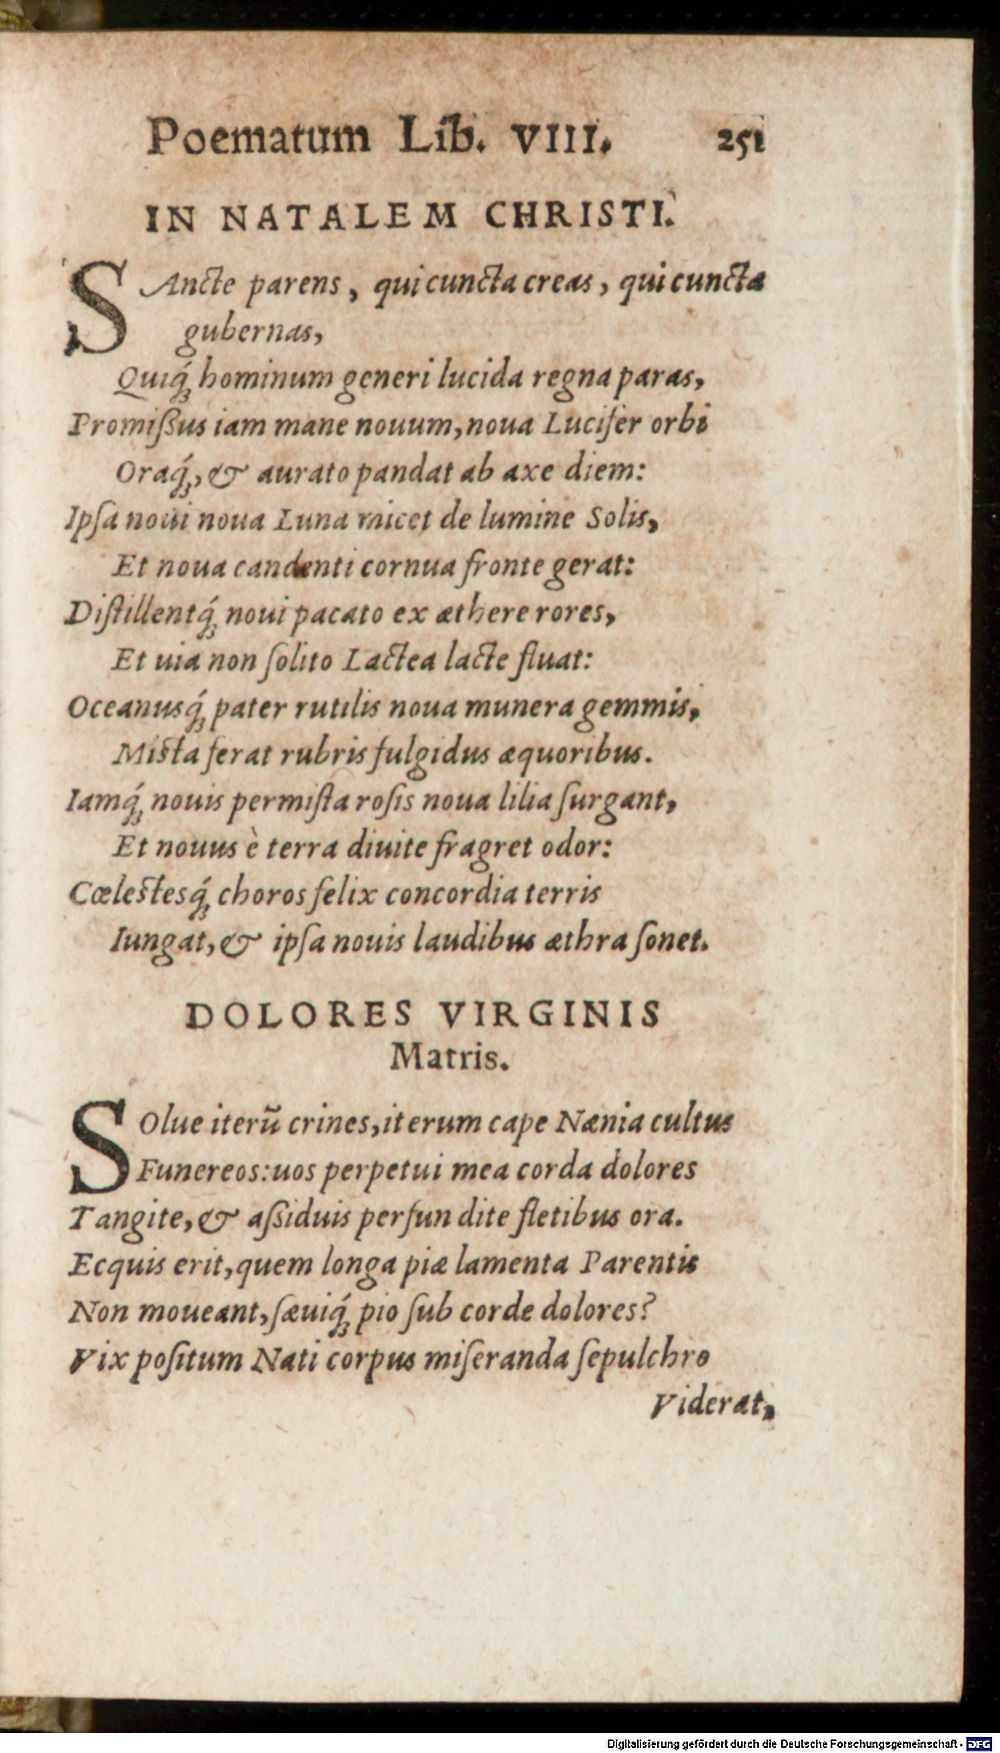 Poematum Lib. VIII. 251
IN NATALEM CHRISTI.
SAncte parens, qui cuncta creas, qui cuncta
gubernas,
Quiq́ꝫ hominum generi lucida regna paras,
Promißus iam mane nouum, noua Lucifer orbi
Oraq́ꝫ, & aurato pandat ab axe diem:
Ipſa noui noua Luna micet de lumine Solis,
Et noua candenti cornua fronte gerat:
Diſtillentq́ꝫ noui pacato ex æthere rores,
Et uia non ſolito Lactea lacte fluat:
Oceanusq́ꝫ pater rutilis noua munera gemmis,
Mista ferat rubris fulgidus æquoribus.
Iamq́ꝫ nouis permiſta roſis noua lilia ſurgant,
Et nouus è terra diuite fragret odor:
Cœlestesq́ꝫ choros felix concordia terris
Iungat, & ipſa nouis laudibus æthra ſonet.
DOLORES VIRGINIS
Matris.
SOlue iterū crines, iterum cape Nænia cultus
Funereos: uos perpetui mea corda dolores
Tangite, & aſsiduis perfundite fletibus ora.
Ecquis erit, quem longa piæ lamenta Parentis
Non moueant, ſæuiq́ꝫ pio ſub corde dolores?
Vix poſitum Nati corpus miſeranda ſepulchro
Viderat,
Digitalisierung gefördert durch die Deutsche Forschungsgemeinschaft - DFG